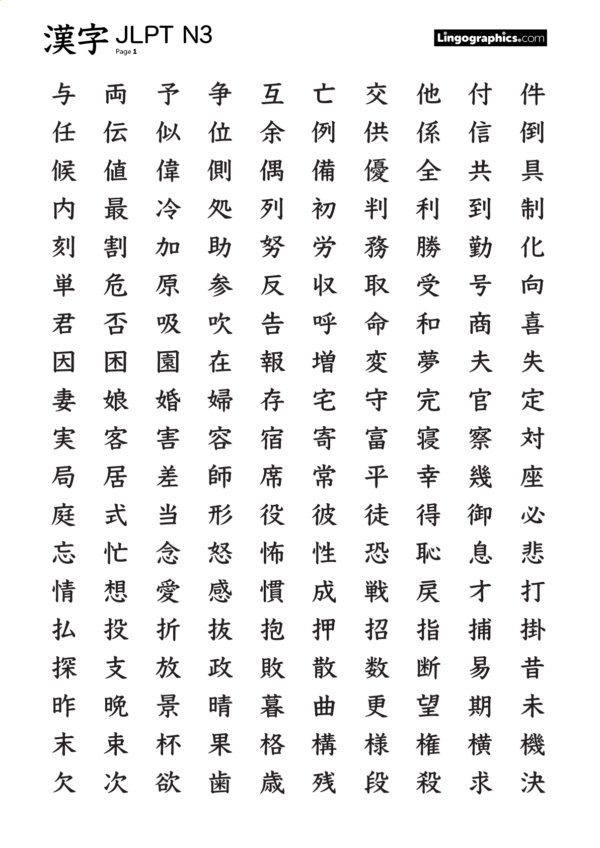 漢字 JLPT N3
Page 1
Lingographics.com
与 両 予 争 互 亡 交 他 付 件
任 伝 似 位 余 例 供 係 信 倒
候 値 偉 側 偶 備 優 全 共 具
内 最 冷 処 列 初 判 利 到 制
刻 割 加 助 努 労 務 勝 勤 化
単 危 原 参 反 収 取 受 号 向
君 否 吸 吹 告 呼 命 和 商 喜
因 困 園 在 報 増 変 夢 夫 失
妻 娘 婚 婦 存 宅 守 完 官 定
実 客 害 容 宿 寄 富 寝 察 対
局 居 差 師 席 常 平 幸 幾 座
庭 式 当 形 役 彼 徒 得 御 必
忘 忙 念 怒 怖 性 恐 恥 息 悲
情 想 愛 感 慣 成 戦 戻 才 打
払 投 折 抜 抱 押 招 指 捕 掛
探 支 放 政 敗 散 数 断 易 昔
昨 晩 景 晴 暮 曲 更 望 期 未
末 束 杯 果 格 構 様 権 横 機
欠 次 欲 歯 歳 残 段 殺 求 決